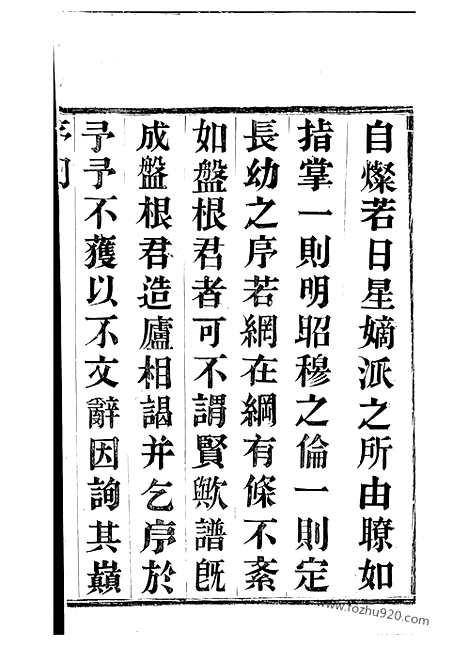 自燦若日星嫡派之所由瞭如
指掌一則明昭穆之倫一則定
長幼之序若網在綱有條不紊
如盤根君者可不謂賢歟譜旣
成盤根君造廬相謁并乞序於
予予不獲以不文辭因詢其巔
www.fozhu920.com